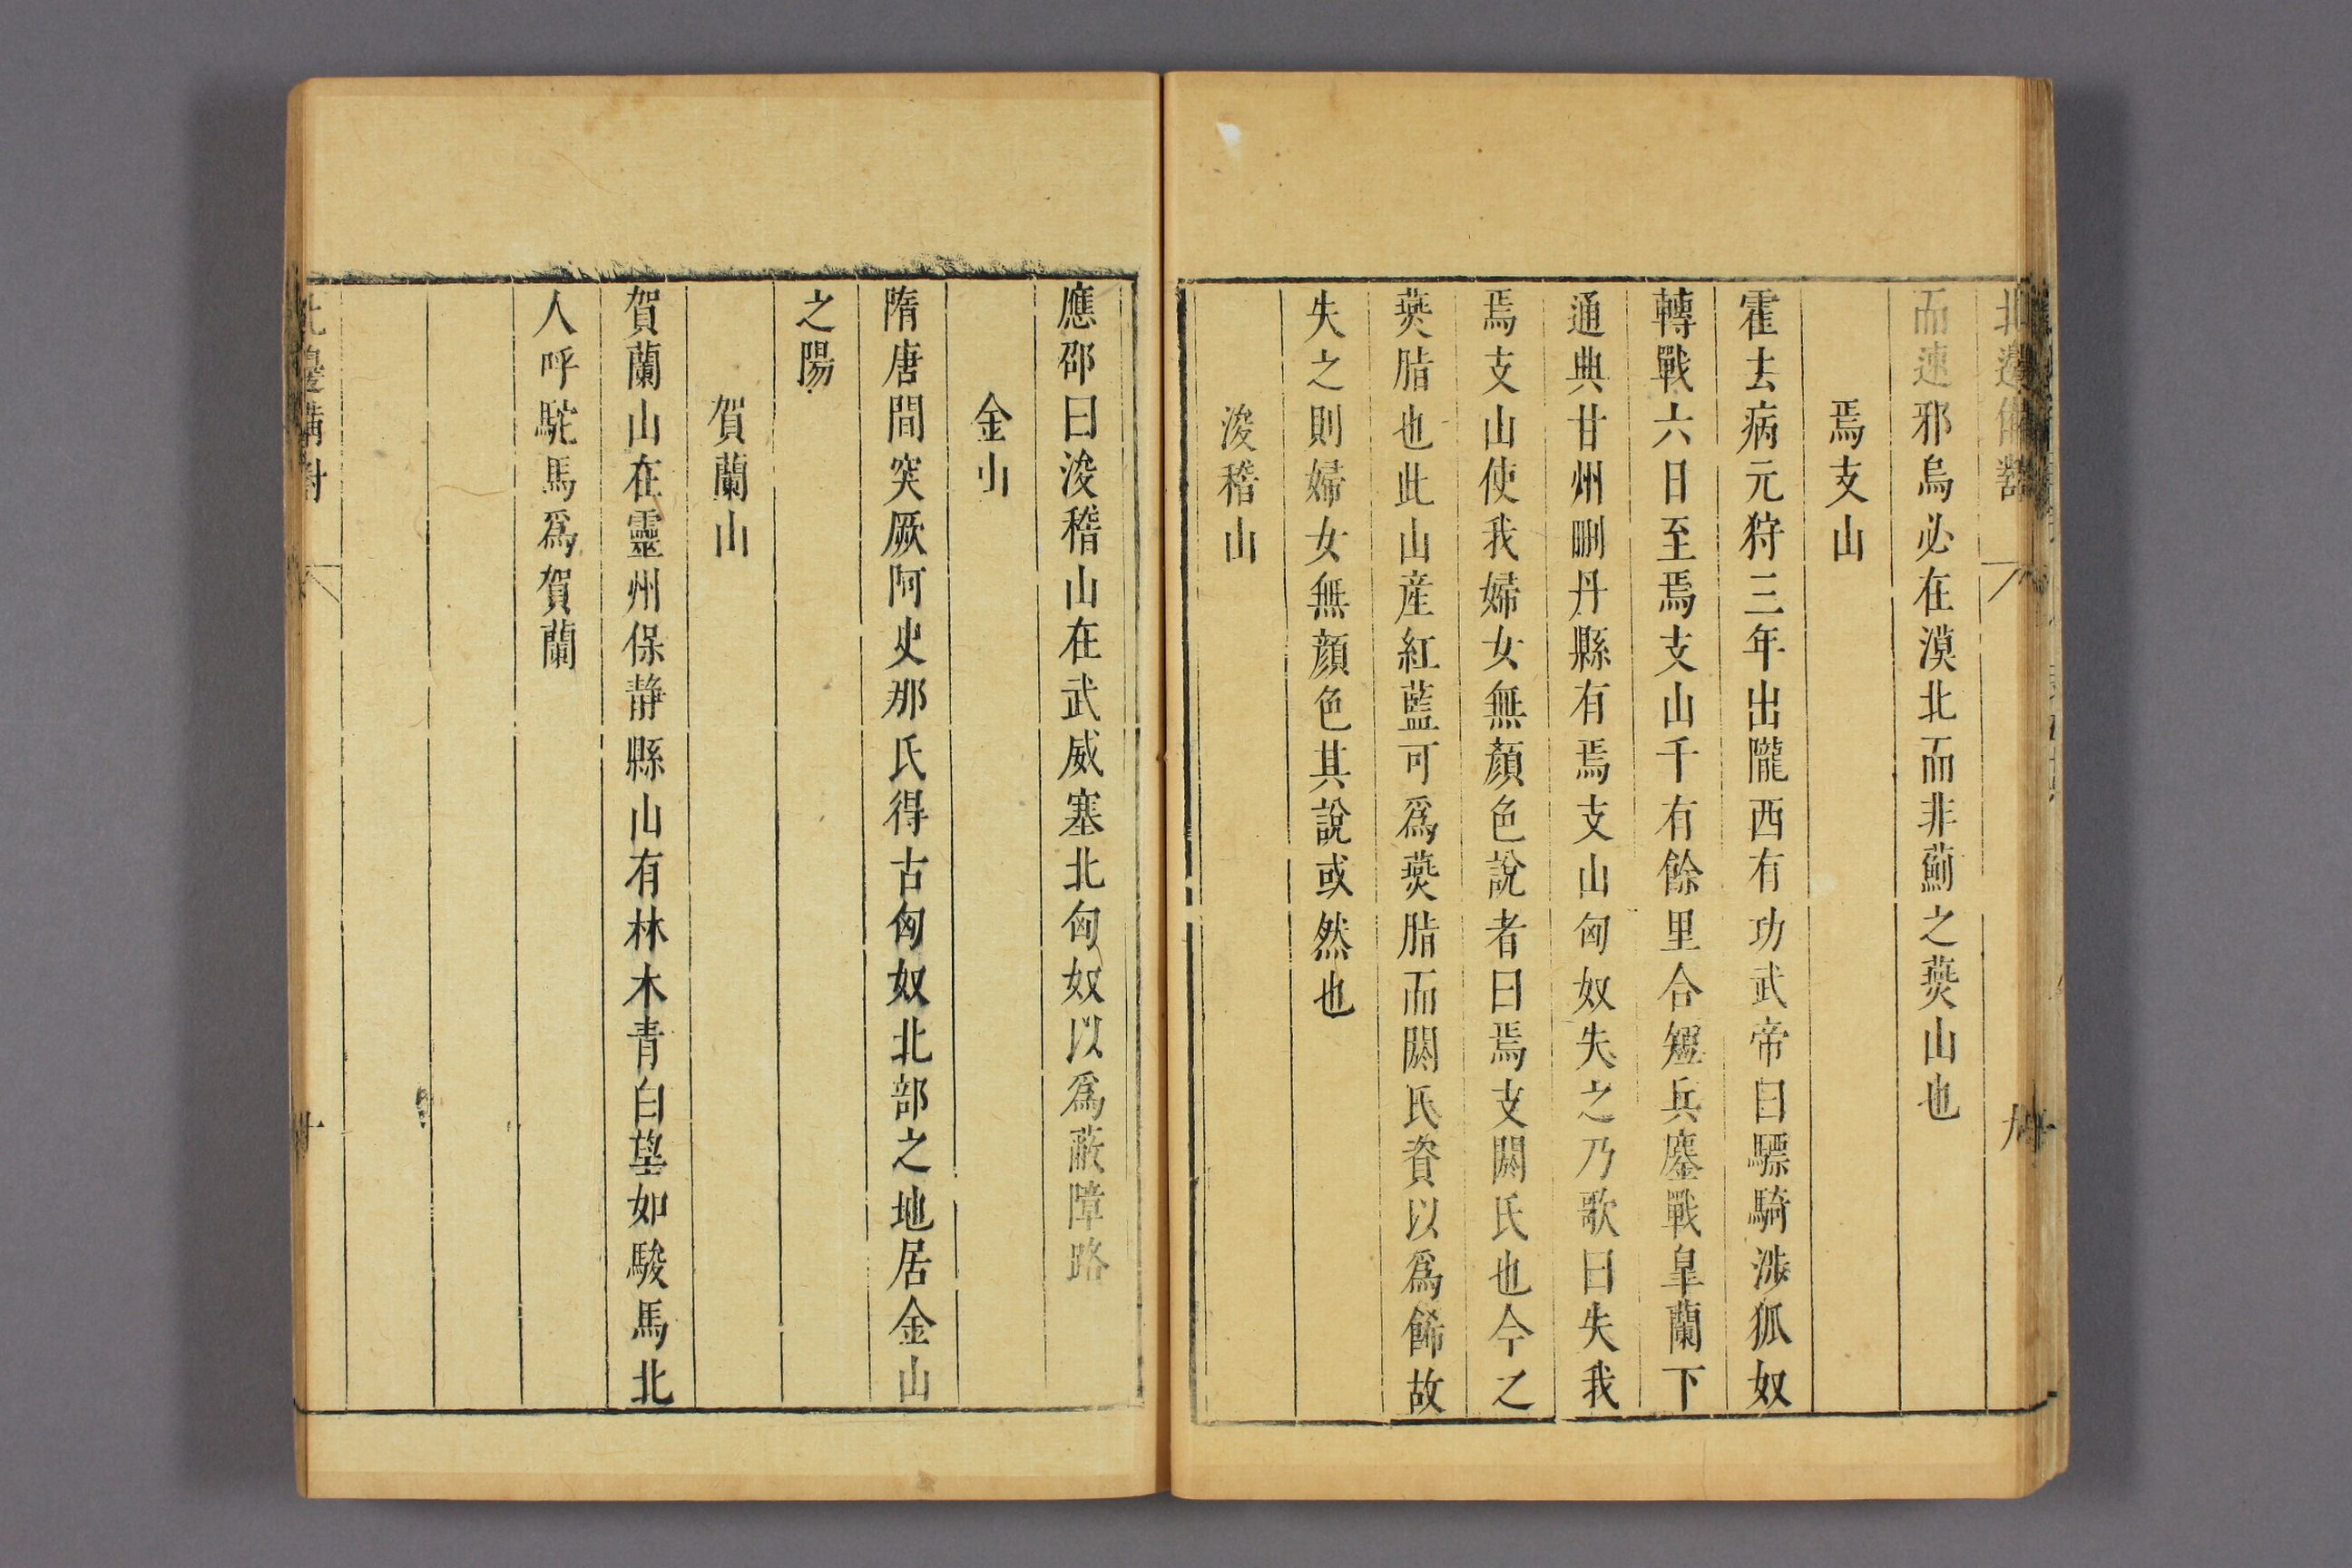 北邊備對
九
而速邪烏必在漠北而非薊之燕山也
焉支山
霍去病元狩三年出隴西有功武帝曰驃騎涉狐奴
轉戰六日至焉支山千有餘里合短兵鏖戰皐蘭下
通典甘州刪丹縣有焉支山匈奴失之乃歌曰失我
焉支山使我婦女無顏色說者曰焉支閼氏也今之
燕脂也此山産紅藍可爲燕脂而閼氏資以爲餙故
失之則婦女無顏色其說或然也
浚稽山
應邵曰浚稽山在武威塞北匈奴以爲蔽障路
金山
隋唐間突厥阿史那氏得古匈奴北部之地居金山
之陽
賀蘭山
賀蘭山在靈州保静縣山有林木青白望如駿馬北
人呼駝馬爲賀蘭
北邊備對
十